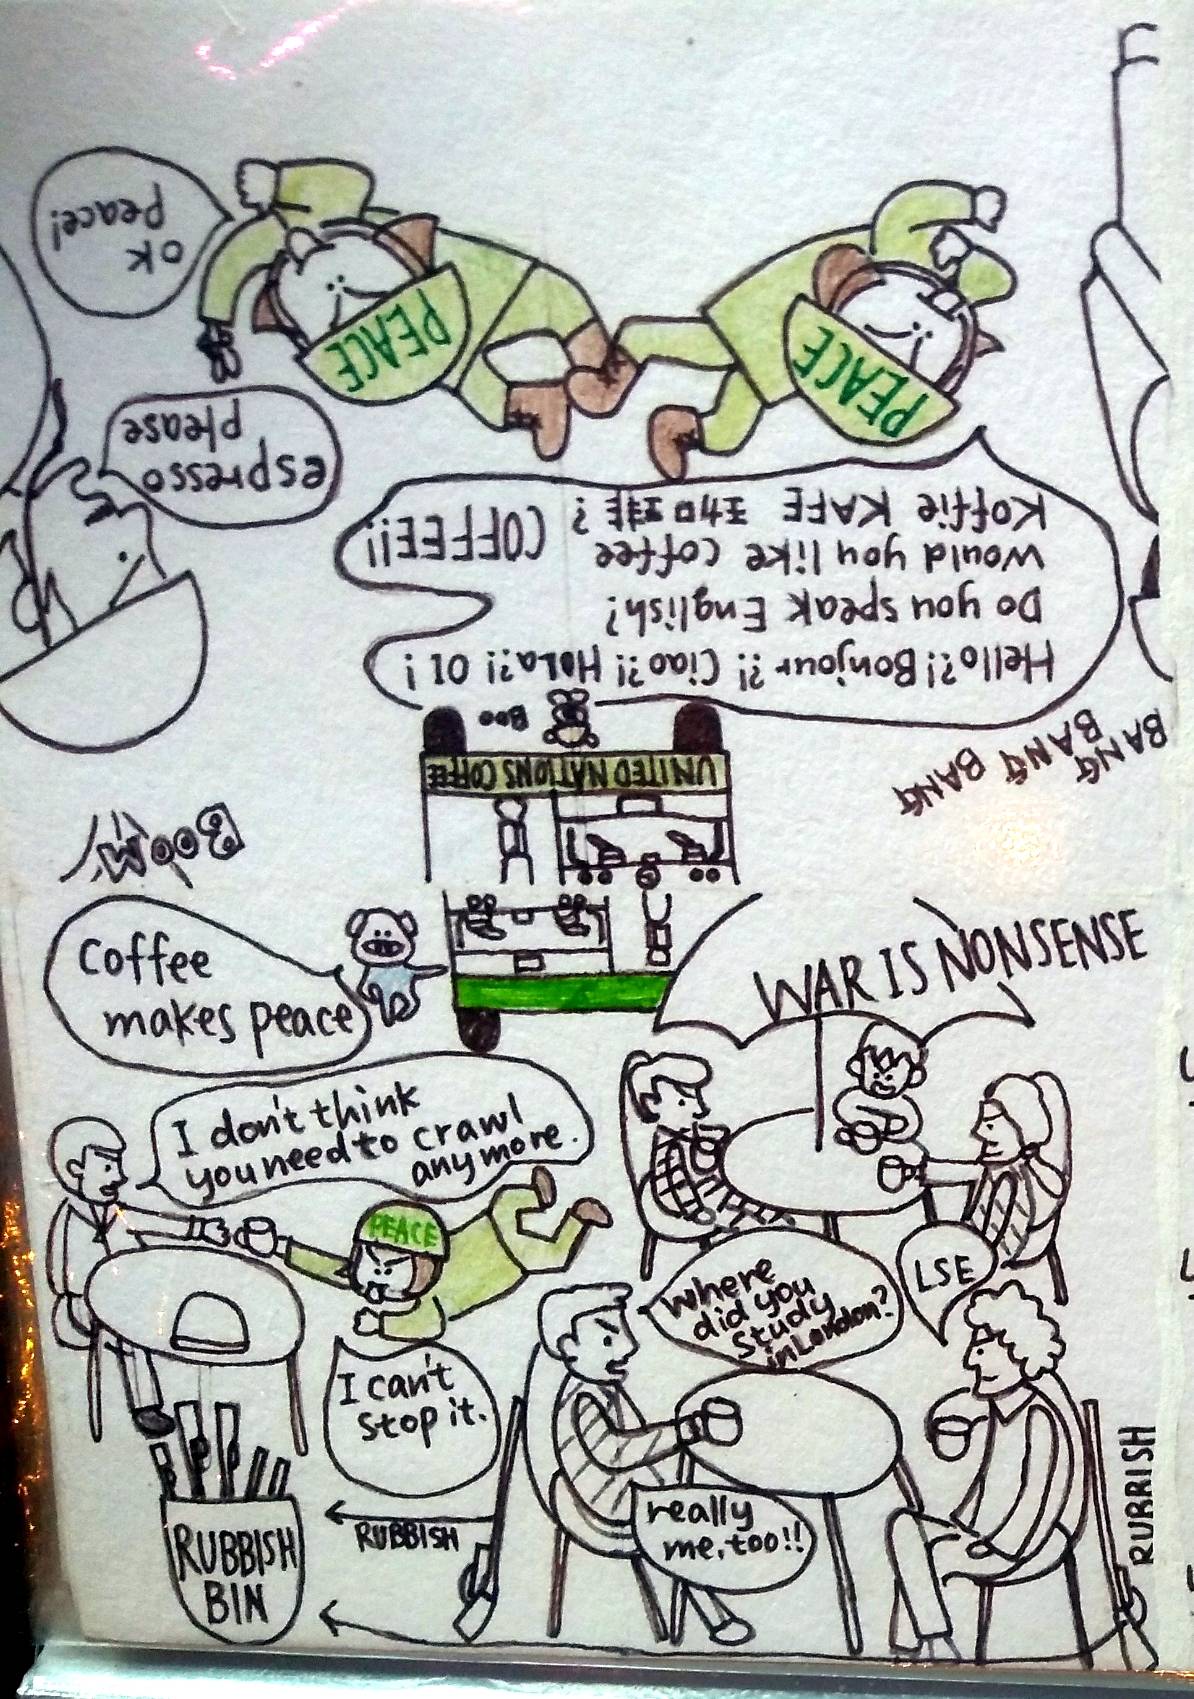 BANG
BANG BANG
BOOM
UNITED NATIONS COFFEE
Boo
Hello?! Bonjour?! Ciao?! HoLa?! OI!
Do you speak English?
Would you like coffee
Koffie KAFE 珈琲? COFFEE!!
espresso
please
PEACE
PEACE
OK
peace!
Coffee
makes peace
WAR IS NONSENSE
I don't think
you need to crawl
anymore.
PEACE
I can't
stop it.
Where
did you
study
in London?
LSE
really
me, too!!
RUBBISH
RUBBISH
RUBBISH
BIN